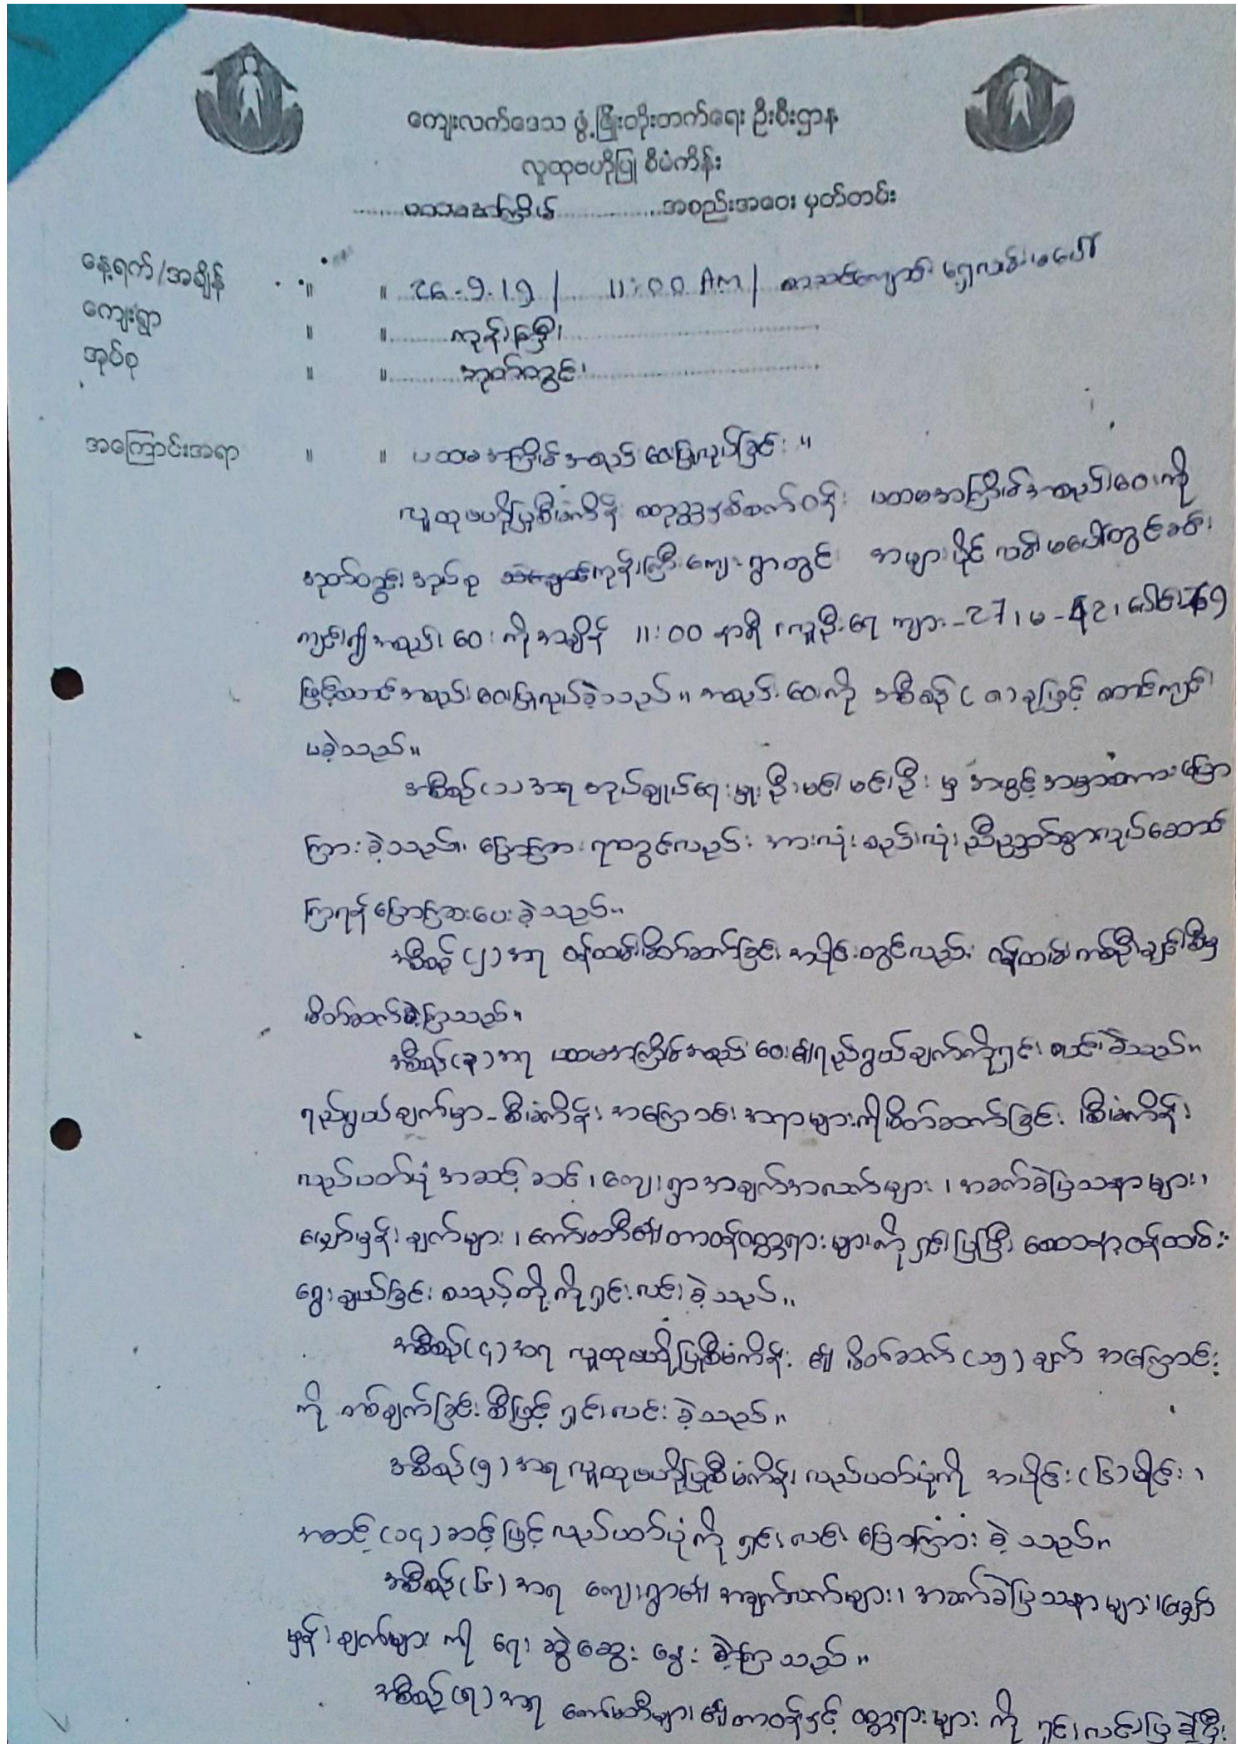 ကျေးလက်ဒေသ ဖွံ့ဖြိုးတိုးတက်ရေး ဦးစီးဌာန
လူထုဗဟိုပြု စီမံကိန်း
ပထမအကြိမ် အစည်းအဝေး မှတ်တမ်း
နေ့ရက်/အချိန် " " 26.9.19 / 11:00 AM /
ကျေးရွာ " " ကုန်းကြီး
အုပ်စု " " အုတ်တွင်း
အကြောင်းအရာ " " ပထမအကြိမ်အစည်းဝေးပြုလုပ်ခြင်း။
လူထုဗဟိုပြုစီမံကိန်း ပထမအကြိမ်အစည်းဝေးကို
အုတ်တွင်းအုပ်စု ကုန်းကြီးကျေးရွာတွင်
ကျင်း၍အစည်းဝေးကိုအချိန် 11:00 နာရီ လူဦးရေ ကျား-27၊ မ-42၊ ပေါင်း 69
ဖြင့်စတင်အစည်းဝေးပြုလုပ်ခဲ့သည်။ အစည်းဝေးကို အစီစဉ် ( ၈ ) ခုဖြင့် စတင်ကျင်း
ပခဲ့သည်။
အစီစဉ်(၁)အရ အုပ်ချုပ်ရေးမှူး ဦး မှ အဖွင့်အမှာစကားပြော
ကြားခဲ့သည်။ ပြောကြားရာတွင်လည်း အားလုံးစည်းလုံးညီညွတ်စွာလုပ်ဆောင်
ကြရန်ပြောကြားပေးခဲ့သည်။
အစီစဉ်(၂)အရ ဝန်ထမ်းမိတ်ဆက်ခြင်း အပိုင်းတွင်လည်း ဝန်ထမ်းတစ်ဦးချင်းစီမှ
မိတ်ဆက်ခဲ့ကြသည်။
အစီစဉ်(၃)အရ ပထမအကြိမ်အစည်းဝေး၏ရည်ရွယ်ချက်ကိုရှင်းလင်းခဲ့သည်။
ရည်ရွယ်ချက်မှာ-စီမံကိန်းအကြောင်းအရာများကိုမိတ်ဆက်ခြင်း၊ စီမံကိန်း
လည်ပတ်ပုံအဆင့်ဆင့်၊ ကျေးရွာအချက်အလက်များ၊ အခက်ခဲပြဿနာများ၊
မျှော်မှန်းချက်များ၊ ကော်မတီ၏တာဝန်ဝတ္တရားများကိုရှင်းပြပြီး စေတနာ့ဝန်ထမ်း
ရွေးချယ်ခြင်း စသည့်တို့ကိုရှင်းလင်းခဲ့သည်။
အစီစဉ်(၄)အရ လူထုဗဟိုပြုစီမံကိန်း၏ မိတ်ဆက်(၁၅)ချက် အကြောင်း
ကို တစ်ချက်ခြင်းစီဖြင့် ရှင်းလင်းခဲ့သည်။
အစီစဉ်(၅)အရ လူထုဗဟိုပြုစီမံကိန်း လည်ပတ်ပုံကို အပိုင်း(၆)ပိုင်း၊
အဆင့်(၁၄)ဆင့်ဖြင့် လည်ပတ်ပုံကို ရှင်းလင်းပြောကြားခဲ့သည်။
အစီစဉ်(၆)အရ ကျေးရွာ၏အချက်လက်များ၊ အခက်ခဲပြဿနာများ၊ မျှော်
မှန်းချက်များကို ရေးဆွဲဆွေးနွေးခဲ့ကြသည်။
အစီစဉ်(၇)အရ ကော်မတီများ၏တာဝန်နှင့် ဝတ္တရားများကို ရှင်းလင်းပြခဲ့ပြီး